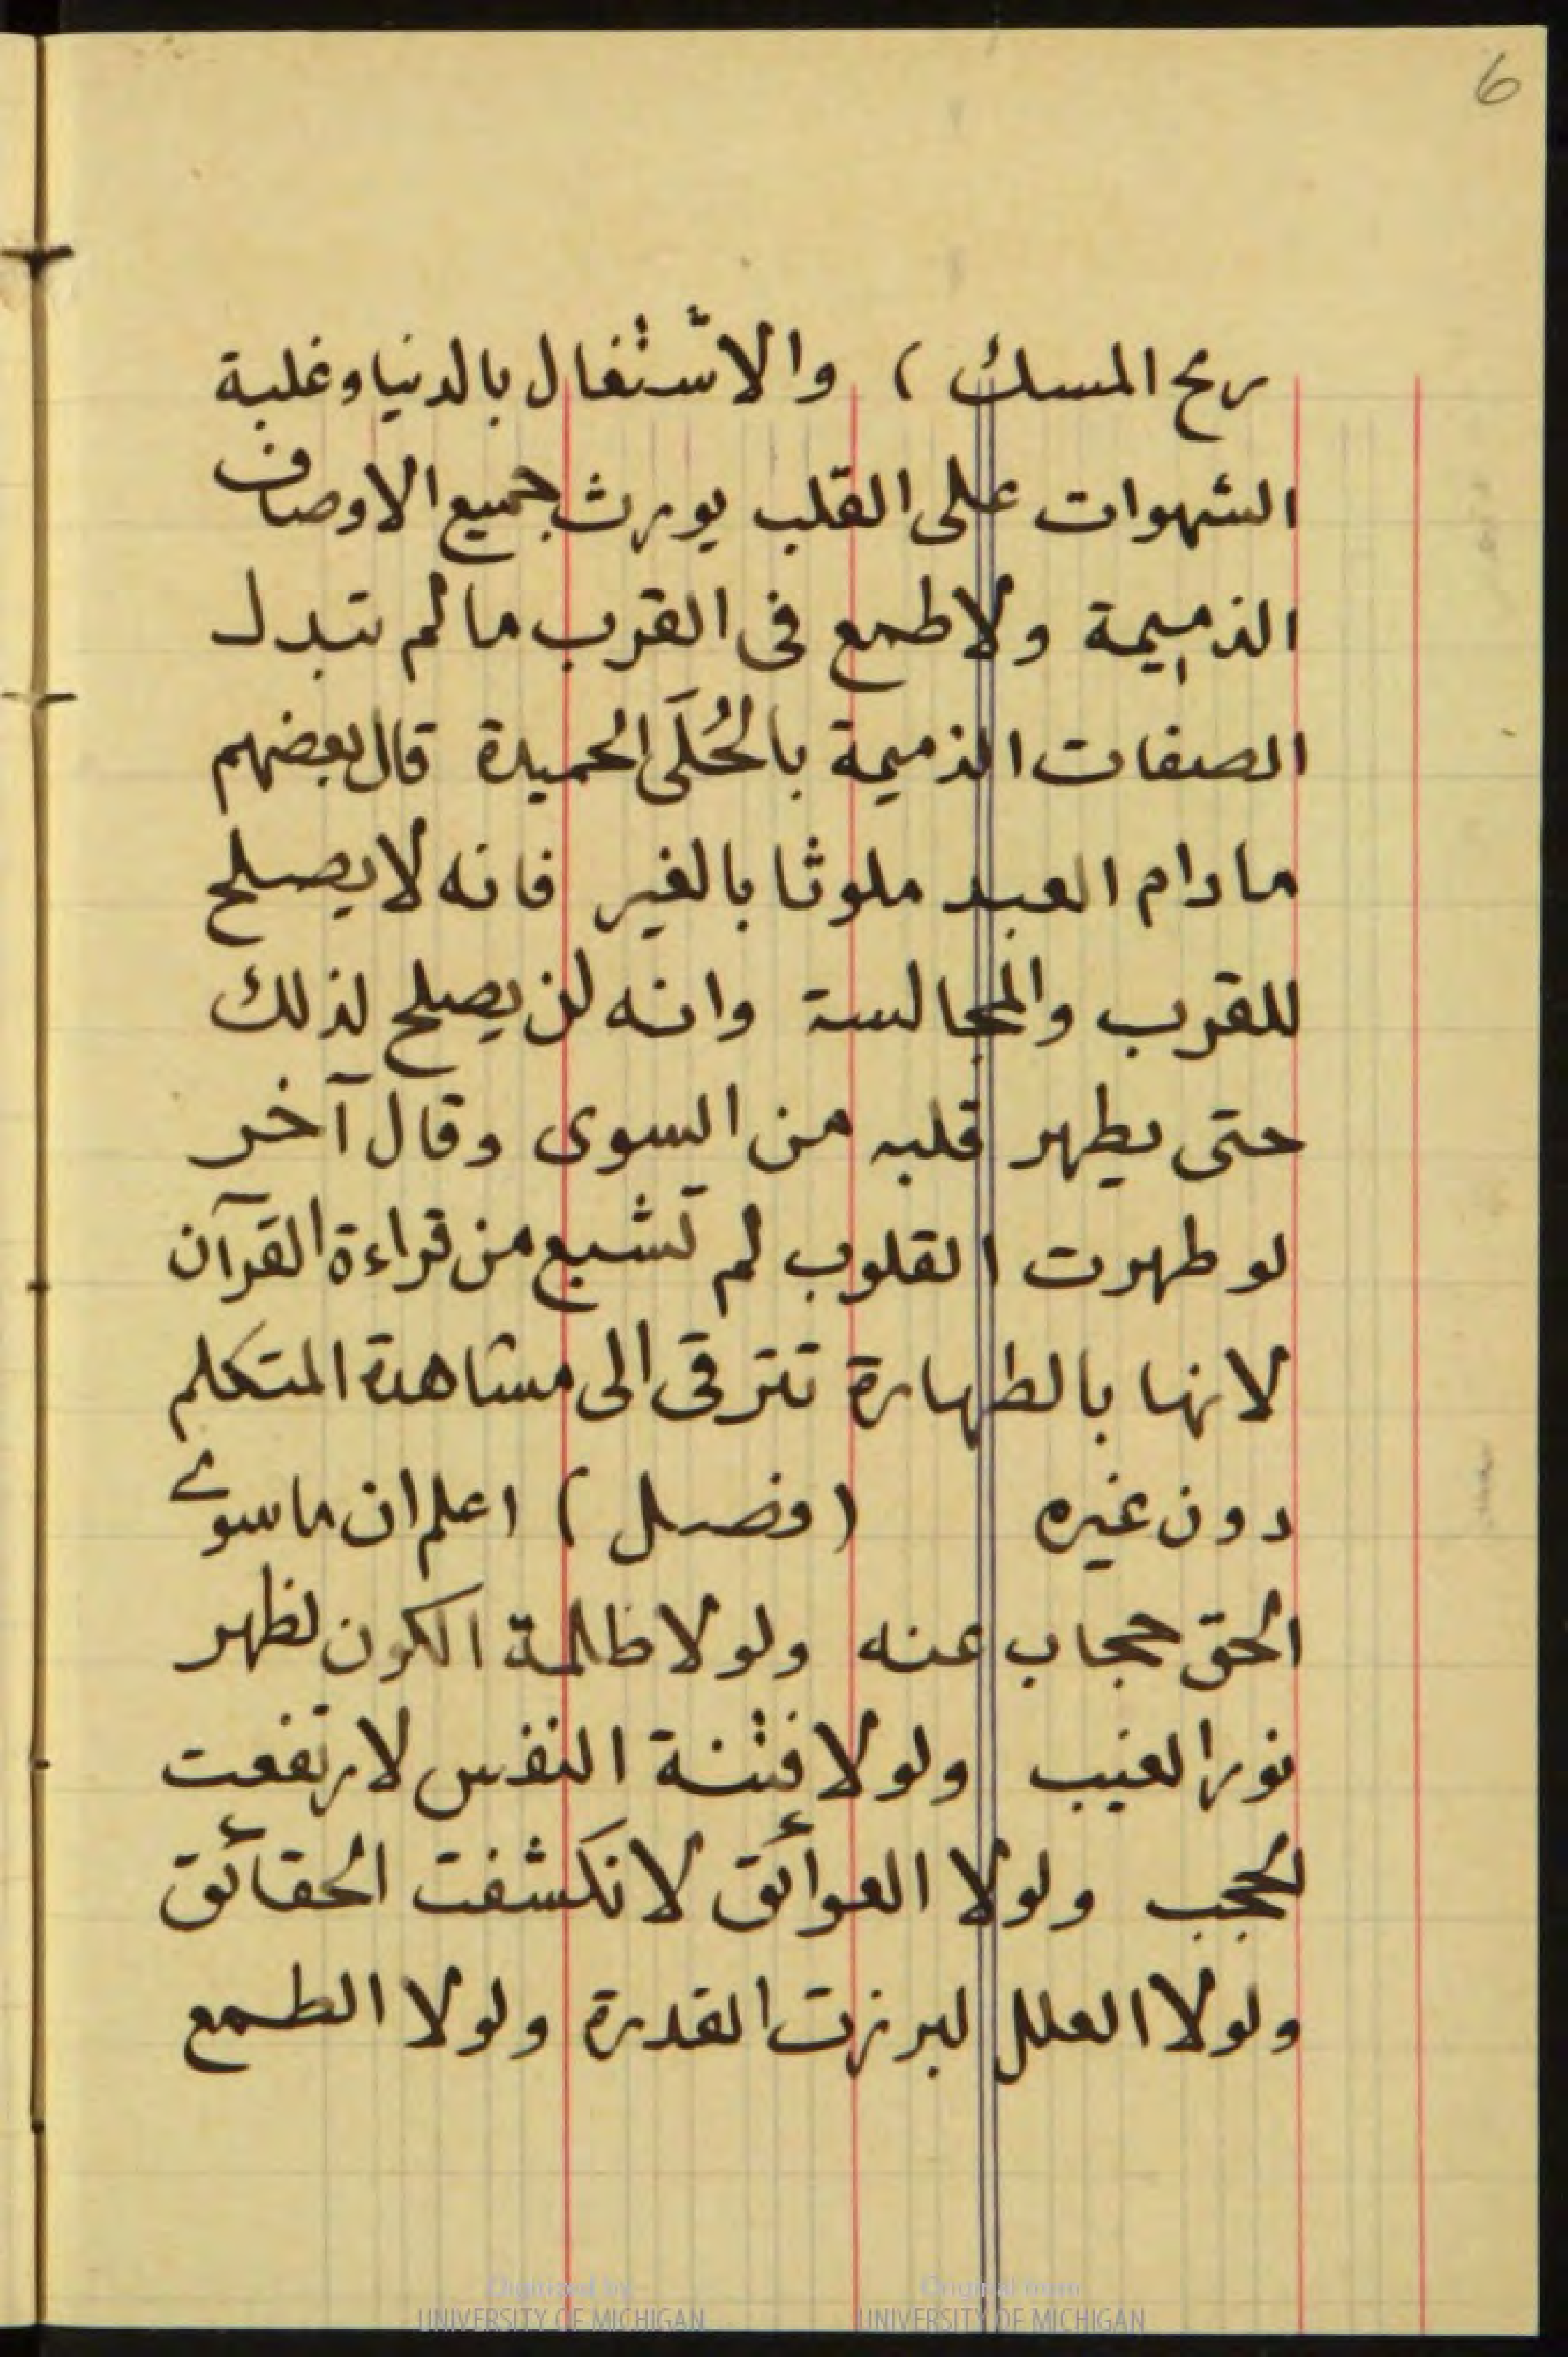 6
ريح المسك ) والاشتغال بالدنيا وغلبة
الشهوات على القلب يورث جميع الاوصاف
الذميمة ولا طمع فى القرب مالم تبدل
الصفات الذميمة بالحُلَى الحميدة قال بعضهم
مادام العبد ملوثا بالغير فانه لا يصلح
للقرب والمجالسة وانه لن يصلح لذلك
حتى يطهر قلبه من السوى وقال آخر
لو طهرت القلوب لم تشبع من قراءة القرآن
لانها بالطهارة تترقى الى مشاهدة المتكلم
دون غيره (فصل) اعلم ان ما سوى
الحق حجاب عنه ولولا ظلمة الكون لظهر
نور الغيب ولولا فتنة النفس لارتفعت
الحجب ولولا العوائق لانكشفت الحقائق
ولولا العلل لبرزت القدرة ولولا الطمع
Digitized by
UNIVERSITY OF MICHIGAN
Original from
UNIVERSITY OF MICHIGAN